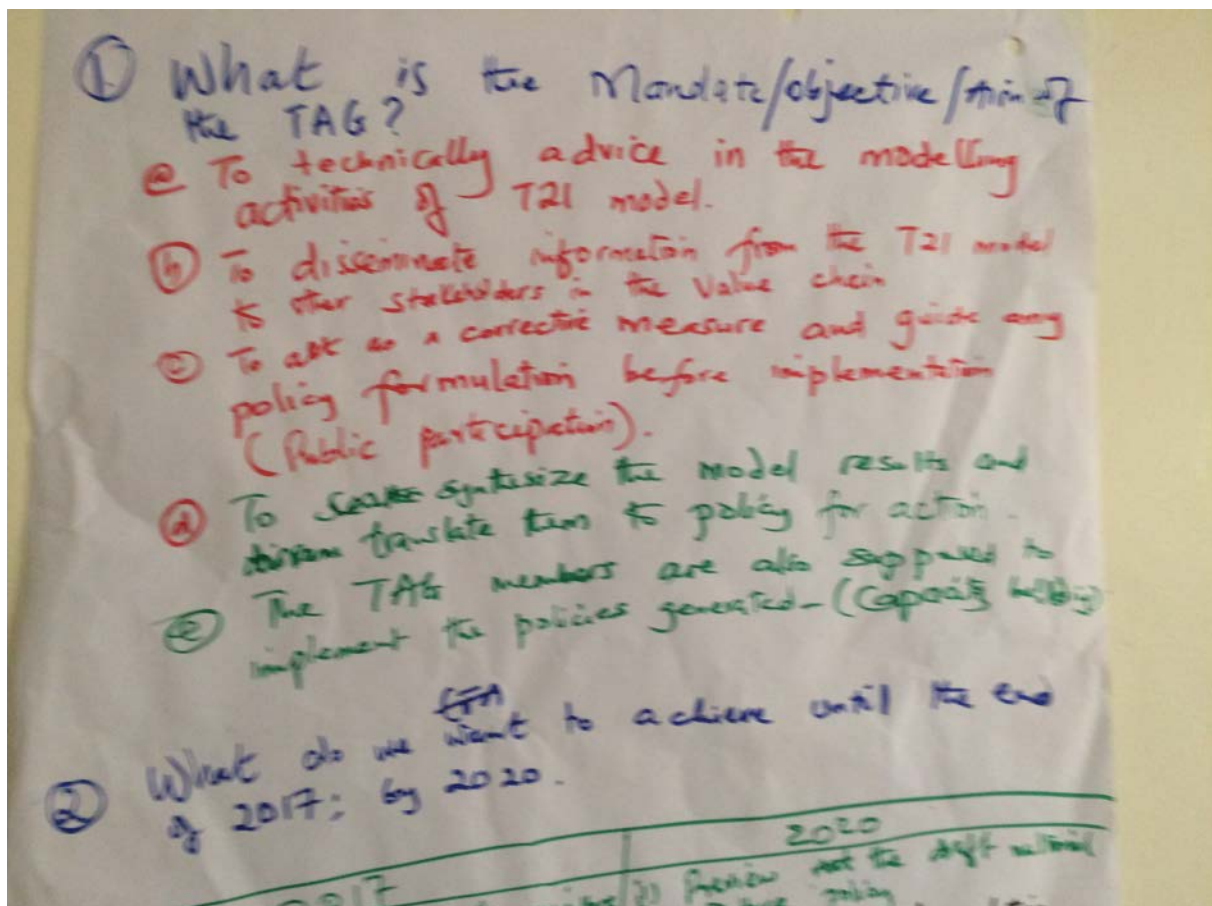 ① What is the Mandate/objective/Aim of
the TAG?
ⓐ To technically advice in the modelling
activities of T21 model.
ⓑ To disseminate information from the T21 model
to other stakeholders in the value chain
ⓒ To act as a corrective measure and guide any
policy formulation before implementation
(Public participation).
ⓓ To synthesize the model results and
translate them to policy for action.
ⓔ The TAG members are also supposed to
implement the policies generated - (Capacity building)
② What do we want to achieve until the end
of 2017; by 2020.
2017 2020
i) Review the draft national
policy